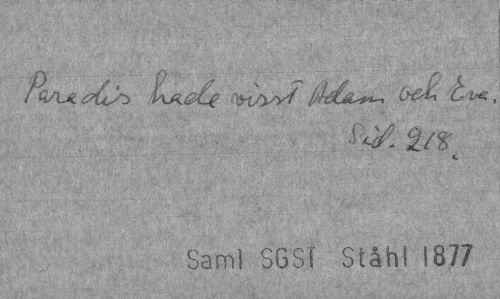 Paradis hade visst Adam och Eva.
Sid. 218.
Saml SGSI Ståhl 1877